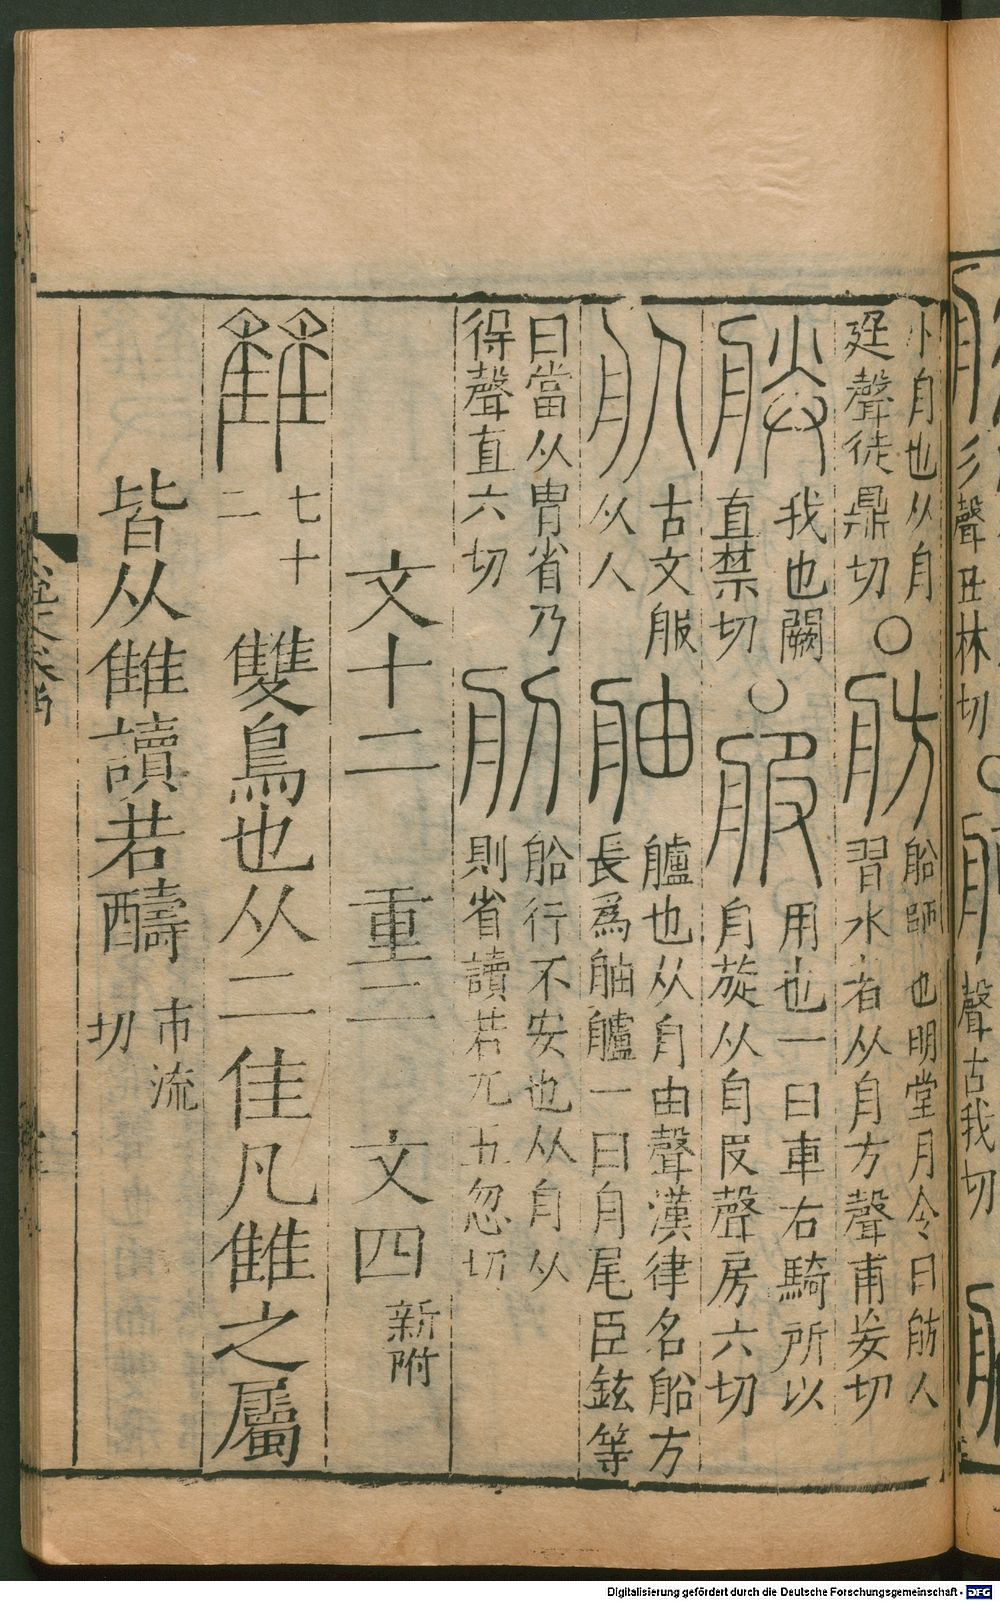 小舟也从舟
廷聲徒鼎切○舫船師也明堂月令曰舫人
習水者从舟方聲甫妄切
朕我也闕
直禁切○服用也一曰車右騎所以
舟旋从舟𠬝聲房六切
𦨕古文服
从人舳艫也从舟由聲漢律名船方
長爲舳艫一曰舟尾臣鉉等
曰當从胄省乃
得聲直六切
舠船行不安也从舟从
刖省讀若兀五忽切
文十二 重二 文四新附
雔七十二 雙鳥也从二隹凡雔之屬
皆从雔讀若醻市流切
彡聲丑林切○
聲古我切
Digitalisierung gefördert durch die Deutsche Forschungsgemeinschaft - DFG